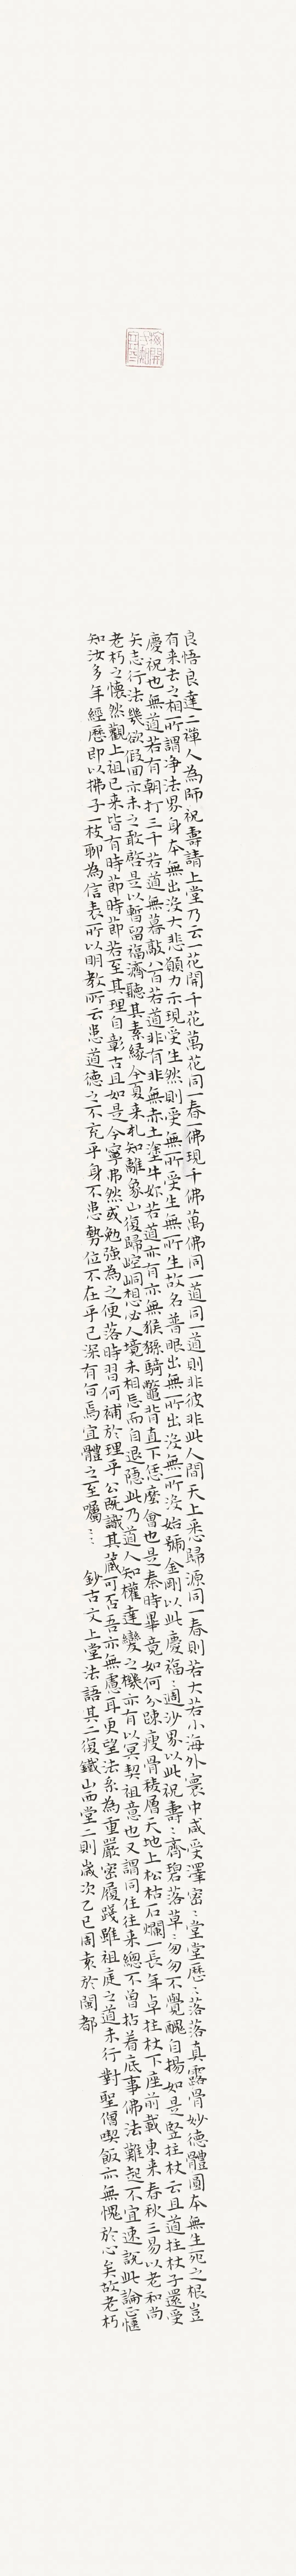 良悟良達二禪人為師祝壽請上堂乃云一花開千花萬花同一春一佛現千佛萬佛同一道同一道則非彼非此人間天上悉歸源同一春則若大若小海外寰中咸受澤密〻堂堂歷〻落落真露骨妙德體圓本無生死之根豈
有来去之相所謂净法界身本無出没大悲願力示現受生然則受無所受生無所生故名普眼出無所出没無所没始號金剛以此慶福〻週沙界以此祝壽〻齊碧落草〻匆匆不覺醜自揚如是竪拄杖云且道拄杖子還受
慶祝也無道若有朝打三千若道無暮敲八百若道非有非無赤土塗牛妳若道亦有亦無猴猻騎鼈背直下恁麼會也是秦時畢竟如何分踈瘦骨稜層天地上松枯石爛一長年卓拄杖下座前載東来春秋三易以老和尚
矢志行法幾欲假回亦未之敢啓是以暫留福濟聽其素緣今夏来札知離象山復歸崆峒想必人境未相忘而自退隱此乃道人知權達變之機亦有以冥契祖意也又謂同住往来總不曽拈着底事佛法難起不宜速說此論正愜
老朽之懷然觀上祖已来皆有時節時節若至其理自彰古且如是今寧弗然或勉強為之便落時習何補於理乎公既識其藏可否吾亦無慮耳更望法系為重嚴密履踐雖祖庭之道未行對聖僧喫飯亦無愧於心矣故老朽
知汝多年經歷即以拂子一枝聊為信表所以明教所云患道德之不充乎身不患勢位不在乎己深有旨焉宜體之至囑〻〻 鈔古文上堂法語其二復鐵山西堂二則歲次乙巳周素於閩都